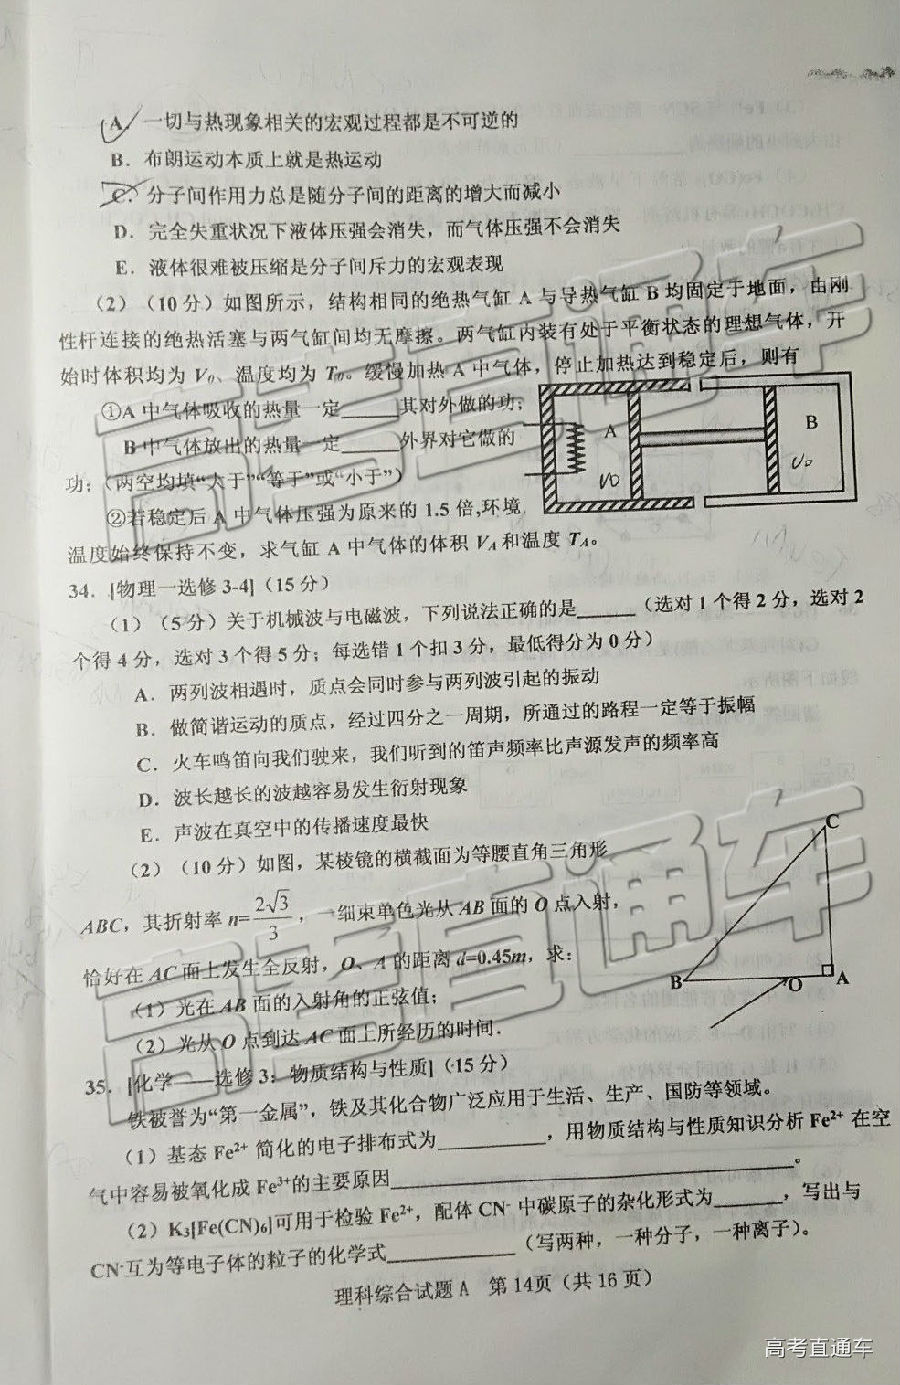 A. 一切与热现象相关的宏观过程都是不可逆的
B. 布朗运动本质上就是热运动
C. 分子间作用力总是随分子间的距离的增大而减小
D. 完全失重状况下液体压强会消失，而气体压强不会消失
E. 液体很难被压缩是分子间斥力的宏观表现
（2）（10分）如图所示，结构相同的绝热气缸 A 与导热气缸 B 均固定于地面，由刚
性杆连接的绝热活塞与两气缸间均无摩擦。两气缸内装有处于平衡状态的理想气体，开
始时体积均为 V₀、温度均为 T₀。缓慢加热 A 中气体，停止加热达到稳定后，则有
①A 中气体吸收的热量一定_____其对外做的功；
B 中气体放出的热量一定_____外界对它做的
功；（两空均填“大于”“等于”或“小于”）
②若稳定后 A 中气体压强为原来的 1.5 倍,环境
温度始终保持不变，求气缸 A 中气体的体积 V_A 和温度 T_A。
A
B
V₀
V₀
34．[物理一选修 3-4]（15 分）
（1）（5分）关于机械波与电磁波，下列说法正确的是_____（选对 1 个得 2 分，选对 2
个得 4 分，选对 3 个得 5 分；每选错 1 个扣 3 分，最低得分为 0 分）
A．两列波相遇时，质点会同时参与两列波引起的振动
B．做简谐运动的质点，经过四分之一周期，所通过的路程一定等于振幅
C．火车鸣笛向我们驶来，我们听到的笛声频率比声源发声的频率高
D．波长越长的波越容易发生衍射现象
E．声波在真空中的传播速度最快
（2）（10 分）如图，某棱镜的横截面为等腰直角三角形
ABC，其折射率 n=2√3/3，一细束单色光从 AB 面的 O 点入射，
恰好在 AC 面上发生全反射，O、A 的距离 d=0.45m，求：
（1）光在 AB 面的入射角的正弦值；
（2）光从 O 点到达 AC 面上所经历的时间.
C
B
O
A
35．[化学——选修 3：物质结构与性质]（15 分）
铁被誉为“第一金属”，铁及其化合物广泛应用于生活、生产、国防等领域。
（1）基态 Fe²⁺ 简化的电子排布式为__________，用物质结构与性质知识分析 Fe²⁺ 在空
气中容易被氧化成 Fe³⁺的主要原因______________________________。
（2）K₃[Fe(CN)₆]可用于检验 Fe²⁺，配体 CN⁻ 中碳原子的杂化形式为______，写出与
CN⁻互为等电子体的粒子的化学式____________（写两种，一种分子，一种离子）。
理科综合试题 A 第 14页（共 16 页）
高考直通车
高考直通车
高考直通车